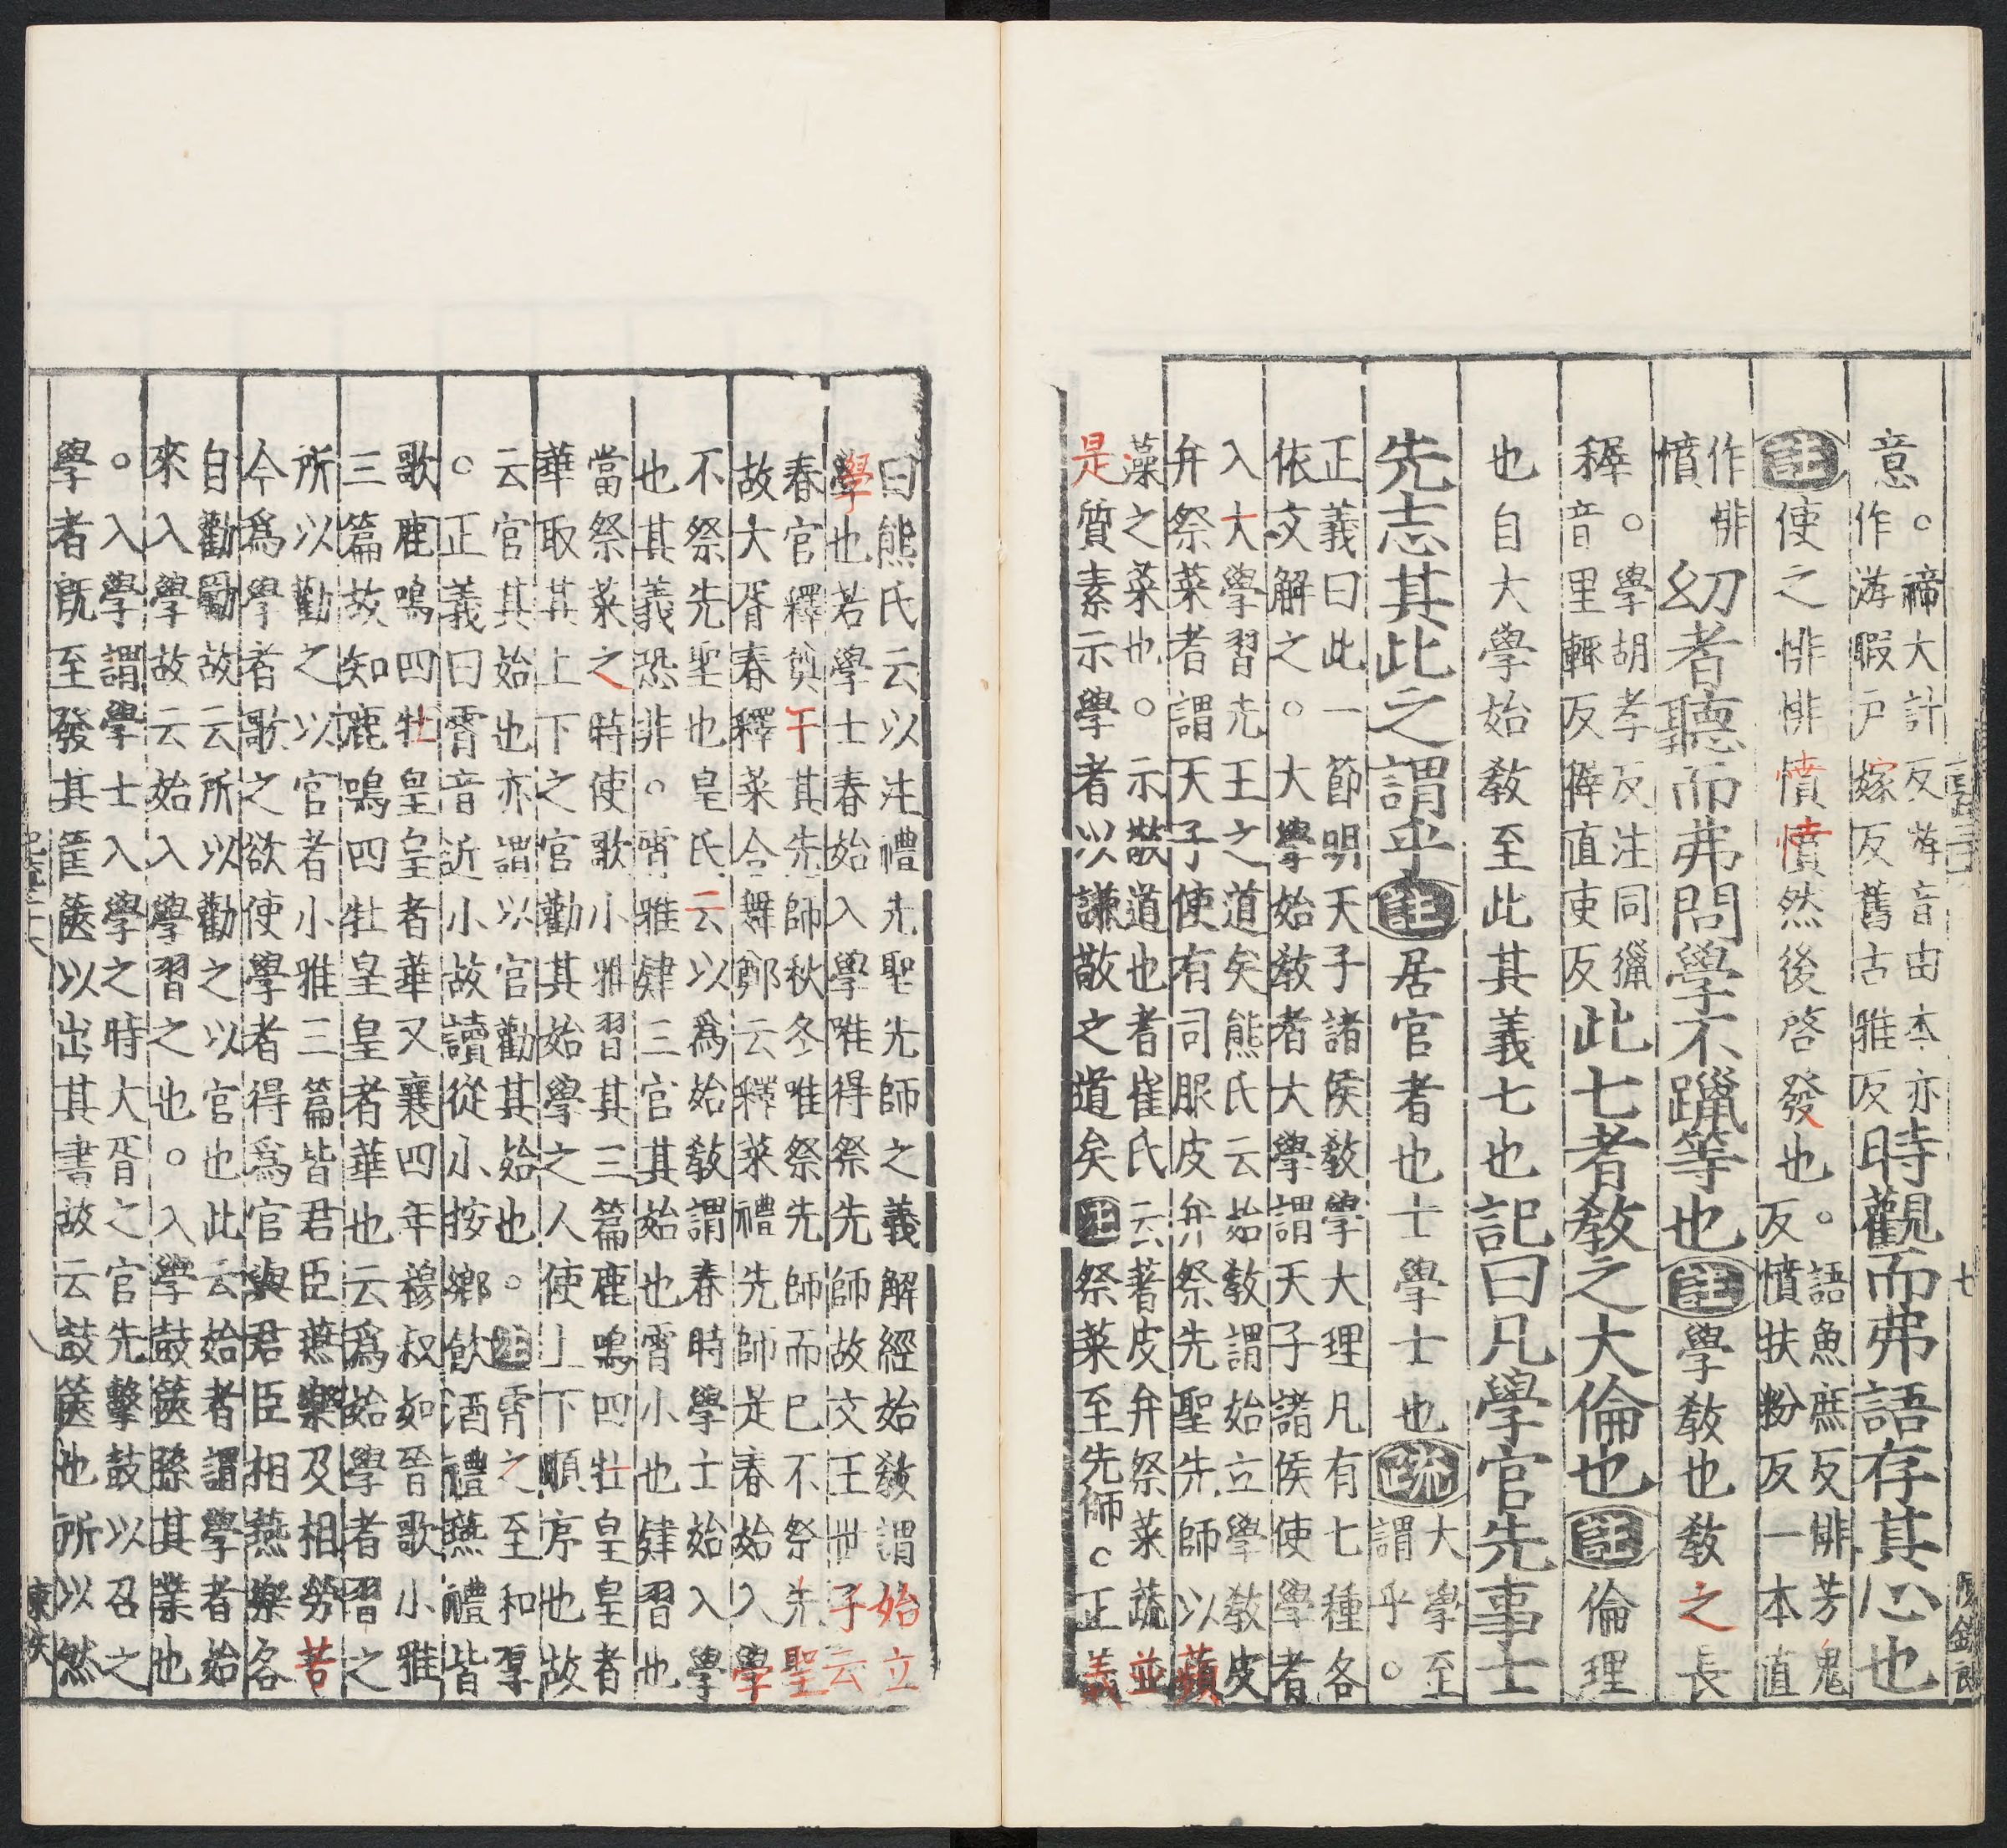 意。禘大計反斿音由本亦
作游暇戶嫁反舊古雅反時觀而弗語存其心也
註使之悱悱憤憤然後啓發也。語魚庶反悱芳鬼
反憤扶粉反一本直
作悱
憤幼者聽而弗問學不躐等也註學教也教之長
稺。學胡孝反注同獵
音里輒反稺直吏反此七者教之大倫也註倫理
也自大學始教至此其義七也記曰凡學官先事士
先志其此之謂乎註居官者也士學士也疏大學至
謂乎。
正義曰此一節明天子諸侯教學大理凡有七種各
依文解之。大學始教者大學謂天子諸侯使學者
入大學習先王之道矣熊氏云始教謂始立學教皮
弁祭菜者謂天子使有司服皮弁祭先聖先師以蘋
藻之菜也。示敬道也者崔氏云著皮弁祭菜蔬並
是質素示學者以謙敬之道矣註祭菜至先師。正義
七
曰熊氏云以注禮先聖先師之義解經始教謂始立
學也若學士春始入學唯得祭先師故文王世子云
春官釋奠于其先師秋冬唯祭先師而已不祭先聖
故大胥春釋菜合舞鄭云釋菜禮先師是春始入學
不祭先聖也皇氏云以爲始教謂春時學士始入學
也其義恐非。宵雅肄三官其始也宵小也肄習也
當祭菜之時使歌小雅習其三篇鹿鳴四牡皇皇者
華取其上下之官勸其始學之人使上下順序也故
云官其始也亦謂以官勸其始也。註宵之至和厚
。正義曰宵音近小故讀從小按鄉飲酒禮燕禮皆
歌鹿鳴四牡皇皇者華又襄四年穆叔如晉歌小雅
三篇故知鹿鳴四牡皇皇者華也云爲始學者習之
所以勸之以官者小雅三篇皆君臣燕樂及相勞苦
今爲學者歌之欲使學者得爲官與君臣相燕樂各
自勸勵故云所以勸之以官也此云始者謂學者始
來入學故云始入學習之也。入學鼓篋孫其業也
。入學謂學士入學之時大胥之官先擊鼓以召之
學者旣至發其筐篋以出其書故云鼓篋也所以然